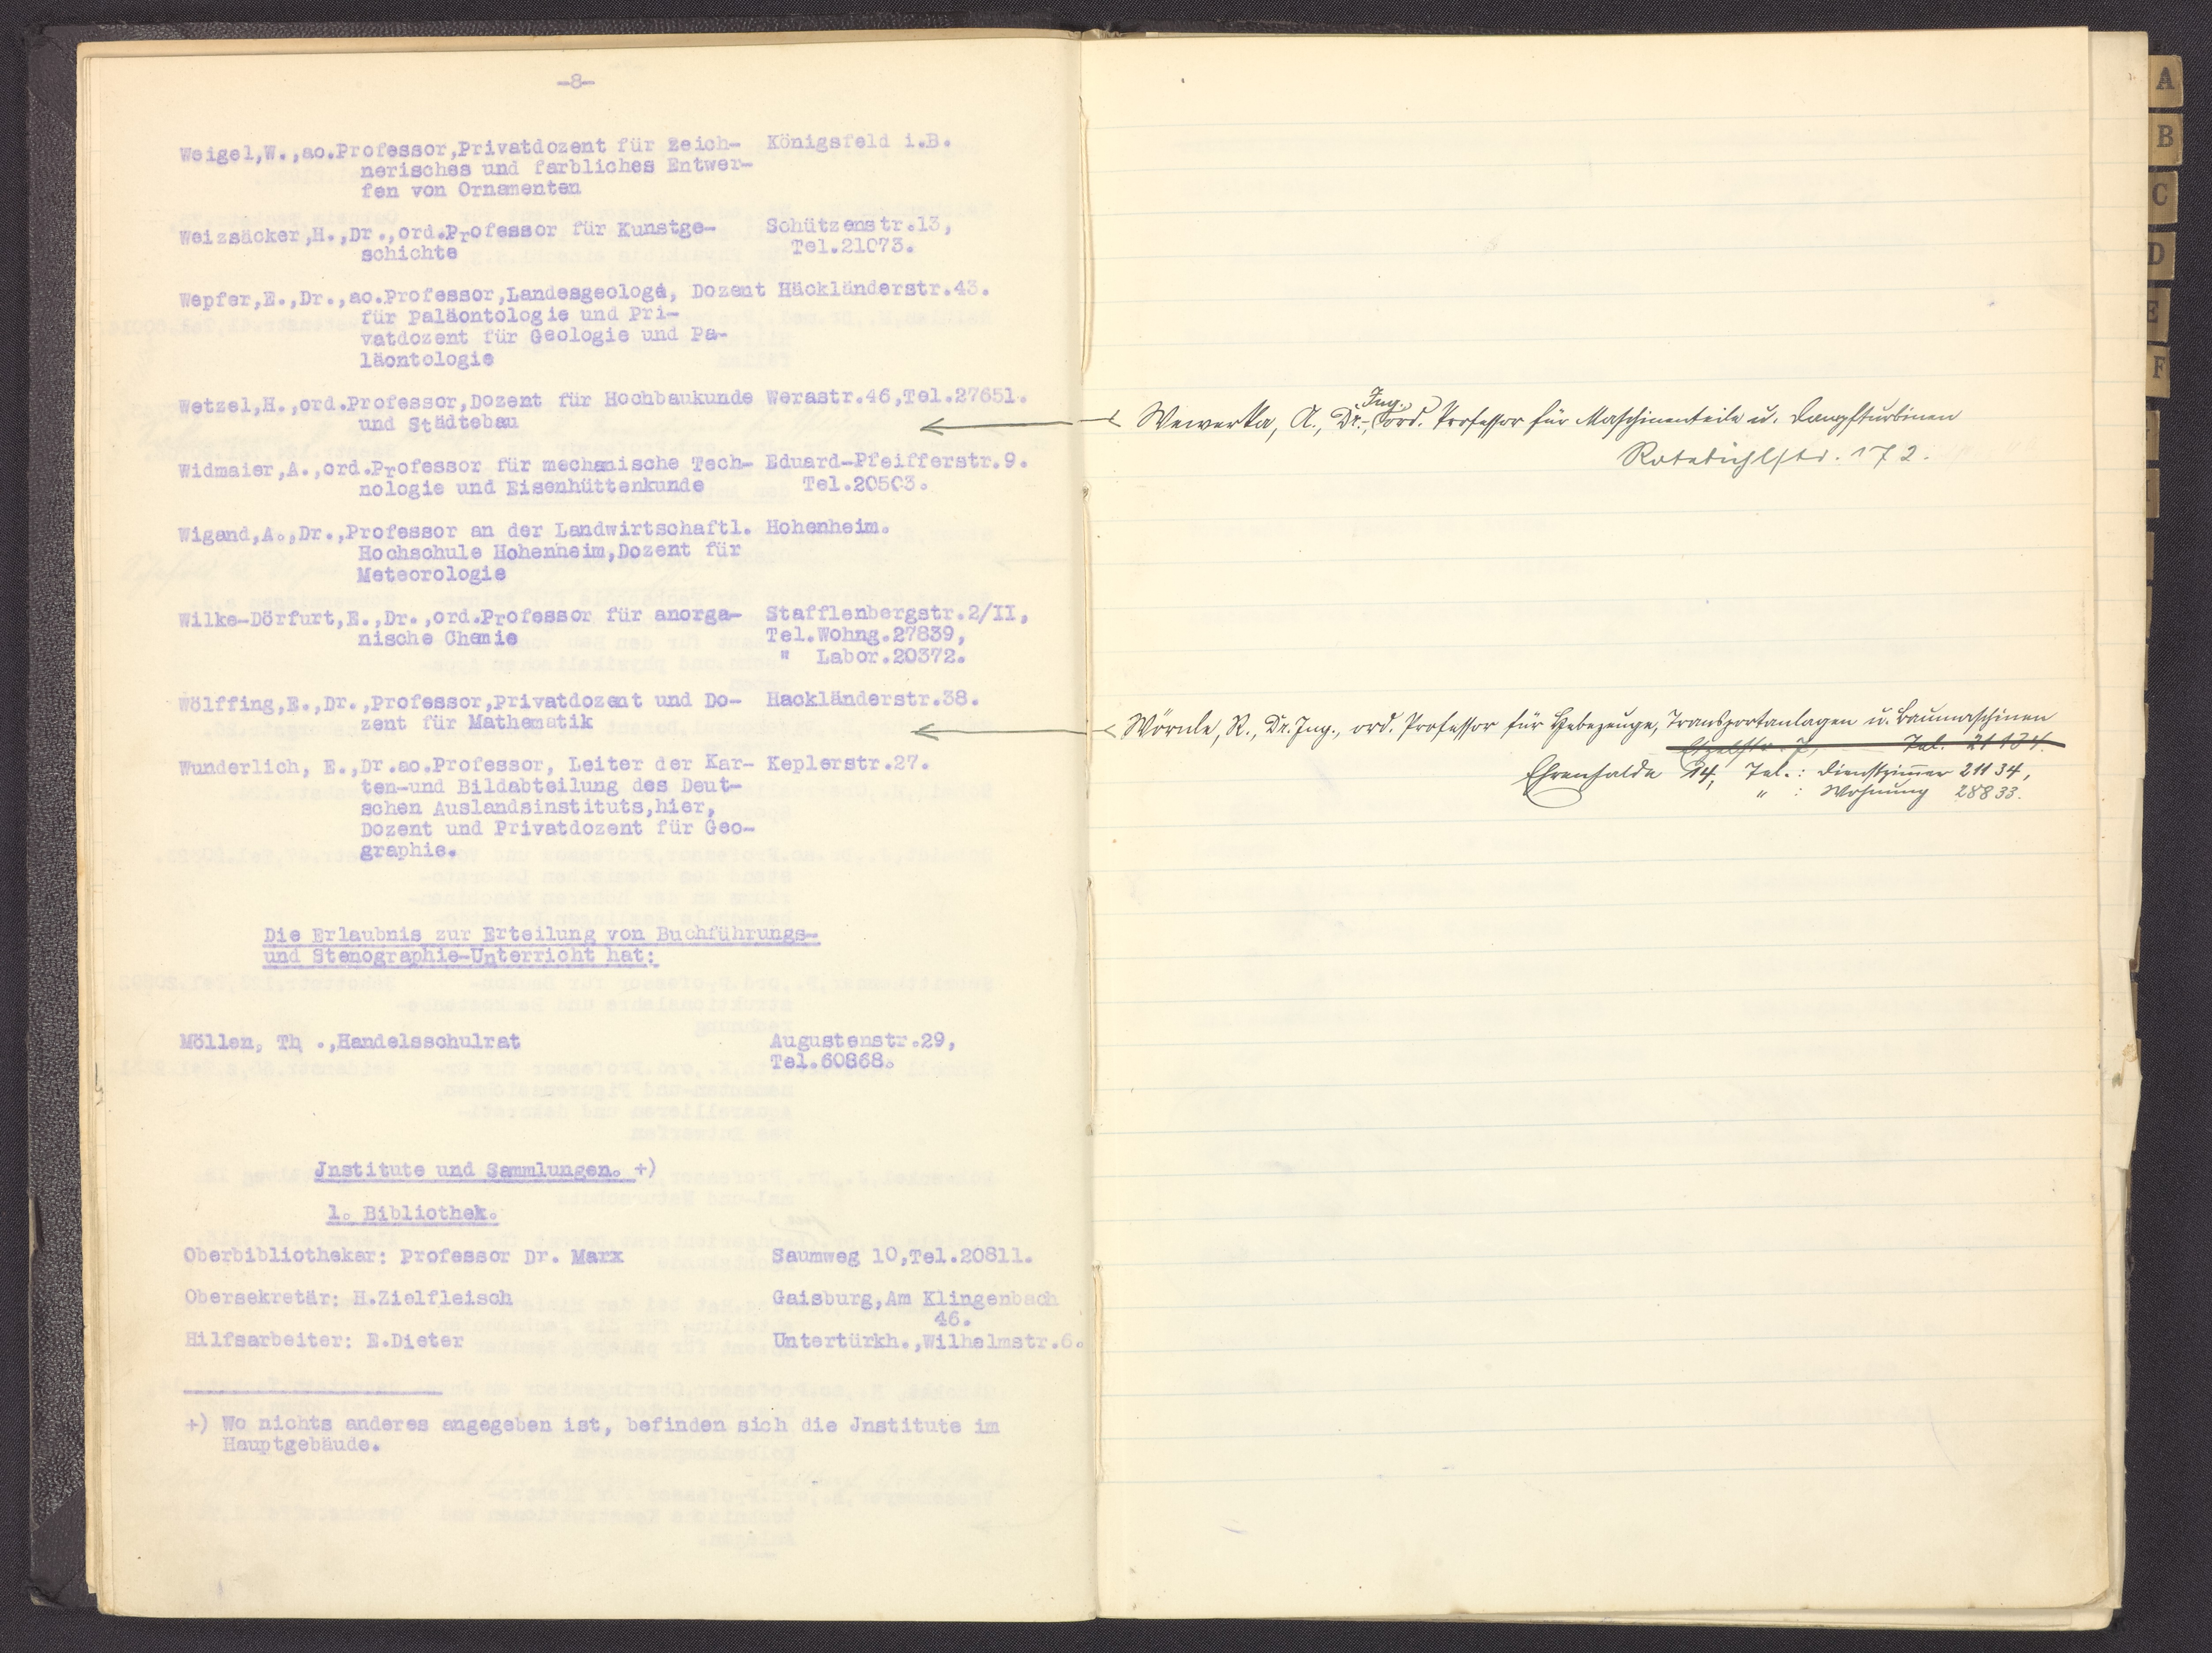 -8-
Weigel,W.,ao.Professor,Privatdozent für Zeich- Königsfeld i.B.
nerisches und farbliches Entwer-
fen von Ornamenten
Weizsäcker,H.,Dr.,ord.Professor für Kunstge- Schützenstr.13,
schichte Tel.21073.
Wepfer,E.,Dr.,ao.Professor,Landesgeologe, Dozent Häckländerstr.43.
für Paläontologie und Pri-
vatdozent für Geologie und Pa-
läontologie
Wetzel,H.,ord.Professor,Dozent für Hochbaukunde Werastr.46,Tel.27651.
und Städtebau
Widmaier,A.,ord.Professor für mechanische Tech- Eduard-Pfeifferstr.9.
nologie und Eisenhüttenkunde Tel.20503.
Wigand,A.,Dr.,Professor an der Landwirtschaftl. Hohenheim.
Hochschule Hohenheim,Dozent für
Meteorologie
Wilke-Dörfurt,E.,Dr.,ord.Professor für anorga- Stafflenbergstr.2/II,
nische Chemie Tel.Wohng.27839,
" Labor.20372.
Wölffing,E.,Dr.,Professor,Privatdozent und Do- Hackländerstr.38.
zent für Mathematik
Wunderlich, E.,Dr.ao.Professor, Leiter der Kar- Keplerstr.27.
ten-und Bildabteilung des Deut-
schen Auslandsinstituts,hier,
Dozent und Privatdozent für Geo-
graphie.
Die Erlaubnis zur Erteilung von Buchführungs-
und Stenographie-Unterricht hat:
Möllen, Th .,Handelsschulrat Augustenstr.29,
Tel.60868.
Jnstitute und Sammlungen. +)
1. Bibliothek.
Oberbibliothekar: Professor Dr. Marx Saumweg 10,Tel.20811.
Obersekretär: H.Zielfleisch Gaisburg,Am Klingenbach
46.
Hilfsarbeiter: E.Dieter Untertürkh.,Wilhelmstr.6.
+) Wo nichts anderes angegeben ist, befinden sich die Jnstitute im
Hauptgebäude.
Wewerka, A., Dr.-Ing., ord. Professor für Maschinenteile u. Dampfturbinen
Rotebühlstr. 172.
Wörnle, R., Dr. Ing., ord. Professor für Hebezeuge, Transportanlagen u. Baumaschinen
Etzelstr. 7, Tel. 21134.
Ehrenhalde 14, Tel.: Dienstzimmer 21134,
" : Wohnung 28833.
A
B
C
D
E
F